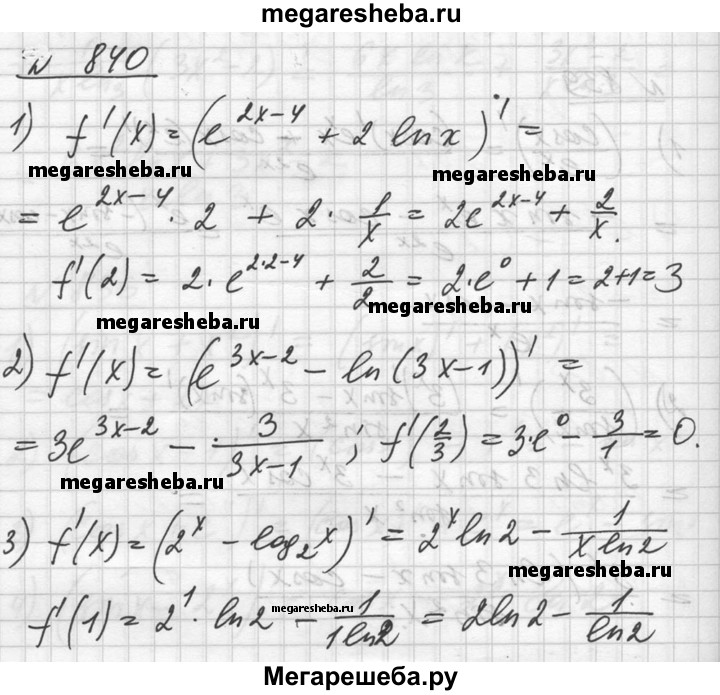 megaresheba.ru
№ 840
1) f'(x) = (e^{2x-4} + 2 ln x)' =
megaresheba.ru megaresheba.ru
= e^{2x-4} · 2 + 2 · 1/x = 2e^{2x-4} + 2/x.
f'(2) = 2 · e^{2·2-4} + 2/2 = 2·e^0 + 1 = 2+1 = 3
megaresheba.ru
megaresheba.ru
2) f'(x) = (e^{3x-2} - ln(3x-1))' =
megaresheba.ru
= 3e^{3x-2} - 3/(3x-1) ; f'(2/3) = 3·e^0 - 3/1 = 0.
megaresheba.ru
3) f'(x) = (2^x - log_2 x)' = 2^x ln2 - 1/(x ln2)
megaresheba.ru
f'(1) = 2^1 · ln2 - 1/(1 ln2) = 2ln2 - 1/ln2
megaresheba.ru
Мегарешеба.ру